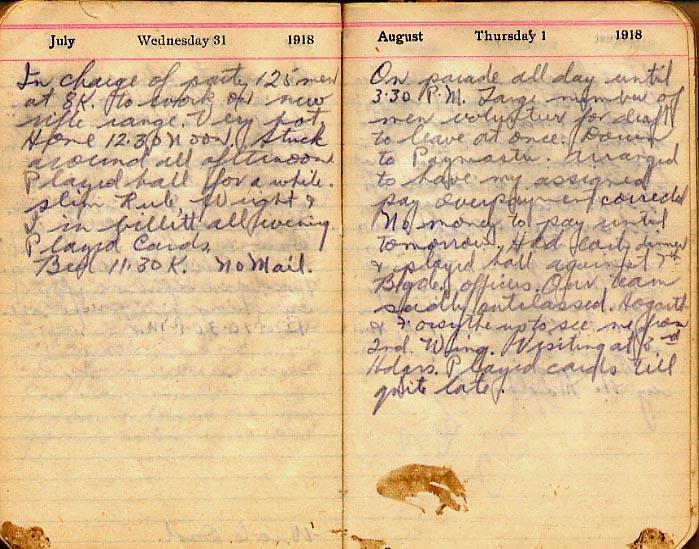 July Wednesday 31 1918
In charge of party 125 men
at 8K. to work on new
rifle range. Very hot
Home 12.30 Noon. Stuck
around all afternoon
Played ball for a while.
Slim Rule, Wright &
I in billitt all evening
Played Cards.
Bed 11.30 K. No Mail.
August Thursday 1 1918
On parade all day until
3.30 P.M. Large number of
men volunteer for draft
to leave at once. Down
to Paymaster. arranged
to have my assigned
pay overpayment corrected
No money to pay until
tomorrow. Had early dinner
& played ball against 7th
Bgde. officers. Our team
sadly outclassed. Hogarth
& Forsythe up to see me from
2nd. Wing. Visiting at 3rd
Hdqrs. Played cards till
quite late.